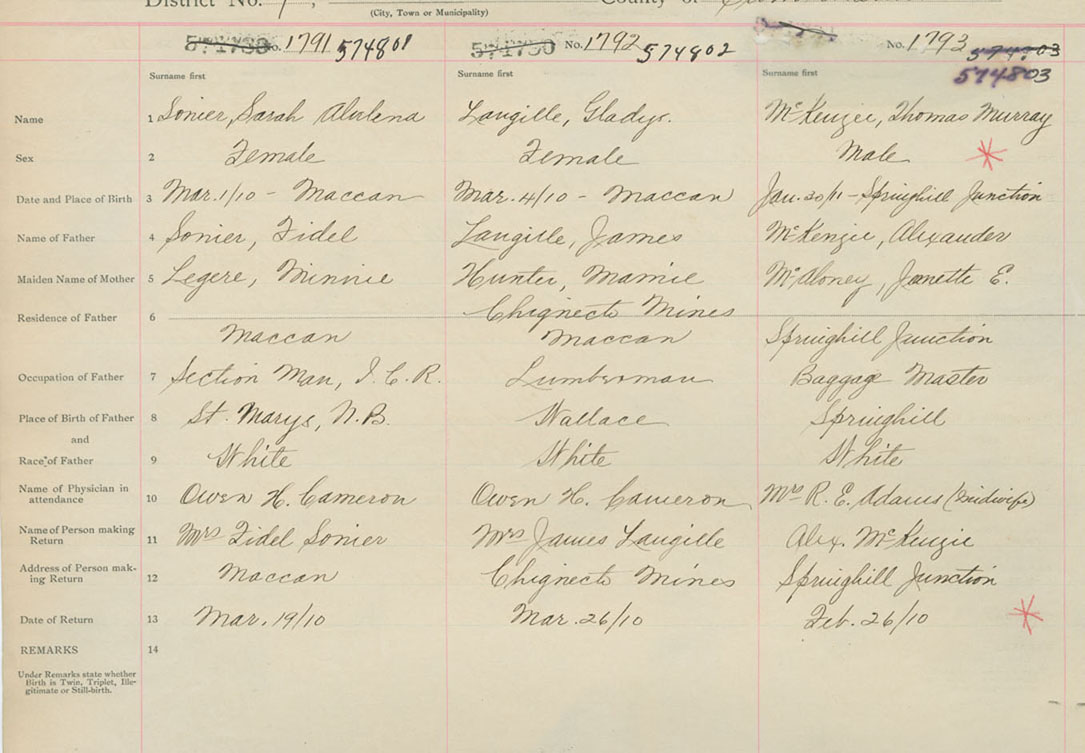 District No. 7,
County of
(City, Town or Municipality)
571750 No. 1791 574801
571750 No. 1792 574802
No. 1793 574703
574803
Surname first
Surname first
Surname first
Name 1 Sonier, Sarah Abulena Langille, Gladys. McKenzie, Thomas Murray
Sex 2 Female Female Male
Date and Place of Birth 3 Mar. 1/10 - Maccan Mar. 4/10 - Maccan Jan. 20/11 - Springhill Junction
Name of Father 4 Sonier, Fidel Langille, James McKenzie, Alexander
Maiden Name of Mother 5 Legere, Minnie Hunter, Mamie McAloney, Janette E.
Residence of Father 6 Chignecto Mines
Maccan Maccan Springhill Junction
Occupation of Father 7 Section Man, I.C.R. Lumberman Baggage Master
Place of Birth of Father 8 St. Marys, N.B. Wallace Springhill
and
Race of Father 9 White White White
Name of Physician in attendance 10 Owen H. Cameron Owen H. Cameron Mrs R. E. Adams (midwife)
Name of Person making Return 11 Mrs Fidel Sonier Mrs James Langille Alex. McKenzie
Address of Person making Return 12 Maccan Chignecto Mines Springhill Junction
Date of Return 13 Mar. 19/10 Mar. 26/10 Feb. 26/10
REMARKS 14
Under Remarks state whether
Birth is Twin, Triplet, Ille-
gitimate or Still-birth.